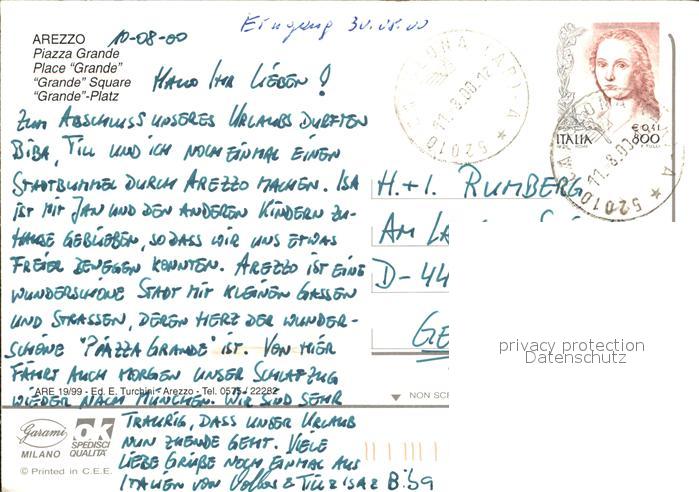 Eingang 30.08.00
AREZZO 10-08-00
Piazza Grande
Place "Grande"
"Grande" Square
"Grande"-Platz
HALLO IHR LIEBEN!
ZUM ABSCHLUSS UNSERES URLAUBS DURFTEN
BIBA, TILL UND ICH NOCH EINMAL EINEN
STADTBUMMEL DURCH AREZZO MACHEN. ISA
IST MIT JAN UND DEN ANDEREN KINDERN ZU-
HAUSE GEBLIEBEN, SODASS WIR UNS ETWAS
FREIER BEWEGEN KONNTEN. AREZZO IST EINE
WUNDERSCHÖNE STADT MIT KLEINEN GASSEN
UND STRASSEN, DEREN HERZ DER WUNDER-
SCHÖNE "PIAZZA GRANDE" IST. VON HIER
FÄHRT AUCH MORGEN UNSER SCHLAFZUG
ARE 19/99 - Ed. E. Turchini - Arezzo - Tel. 0575 / 22282
WIEDER NACH MÜNCHEN. WIR SIND SEHR
TRAURIG, DASS UNSER URLAUB
NUN ZUENDE GEHT. VIELE
LIEBE GRÜßE NOCH EINMAL AUS
ITALIEN VON & TILL & ISA & Biba
Garami
MILANO
ok
SPEDISCI
QUALITA'
© Printed in C.E.E.
NON SCR
11.8.00.12
* 52010
ITALIA
€ 0,41
800
11.8.00
* 52010
H.+I. RUMBERG
AM LA
D-44
GE
privacy protection
Datenschutz